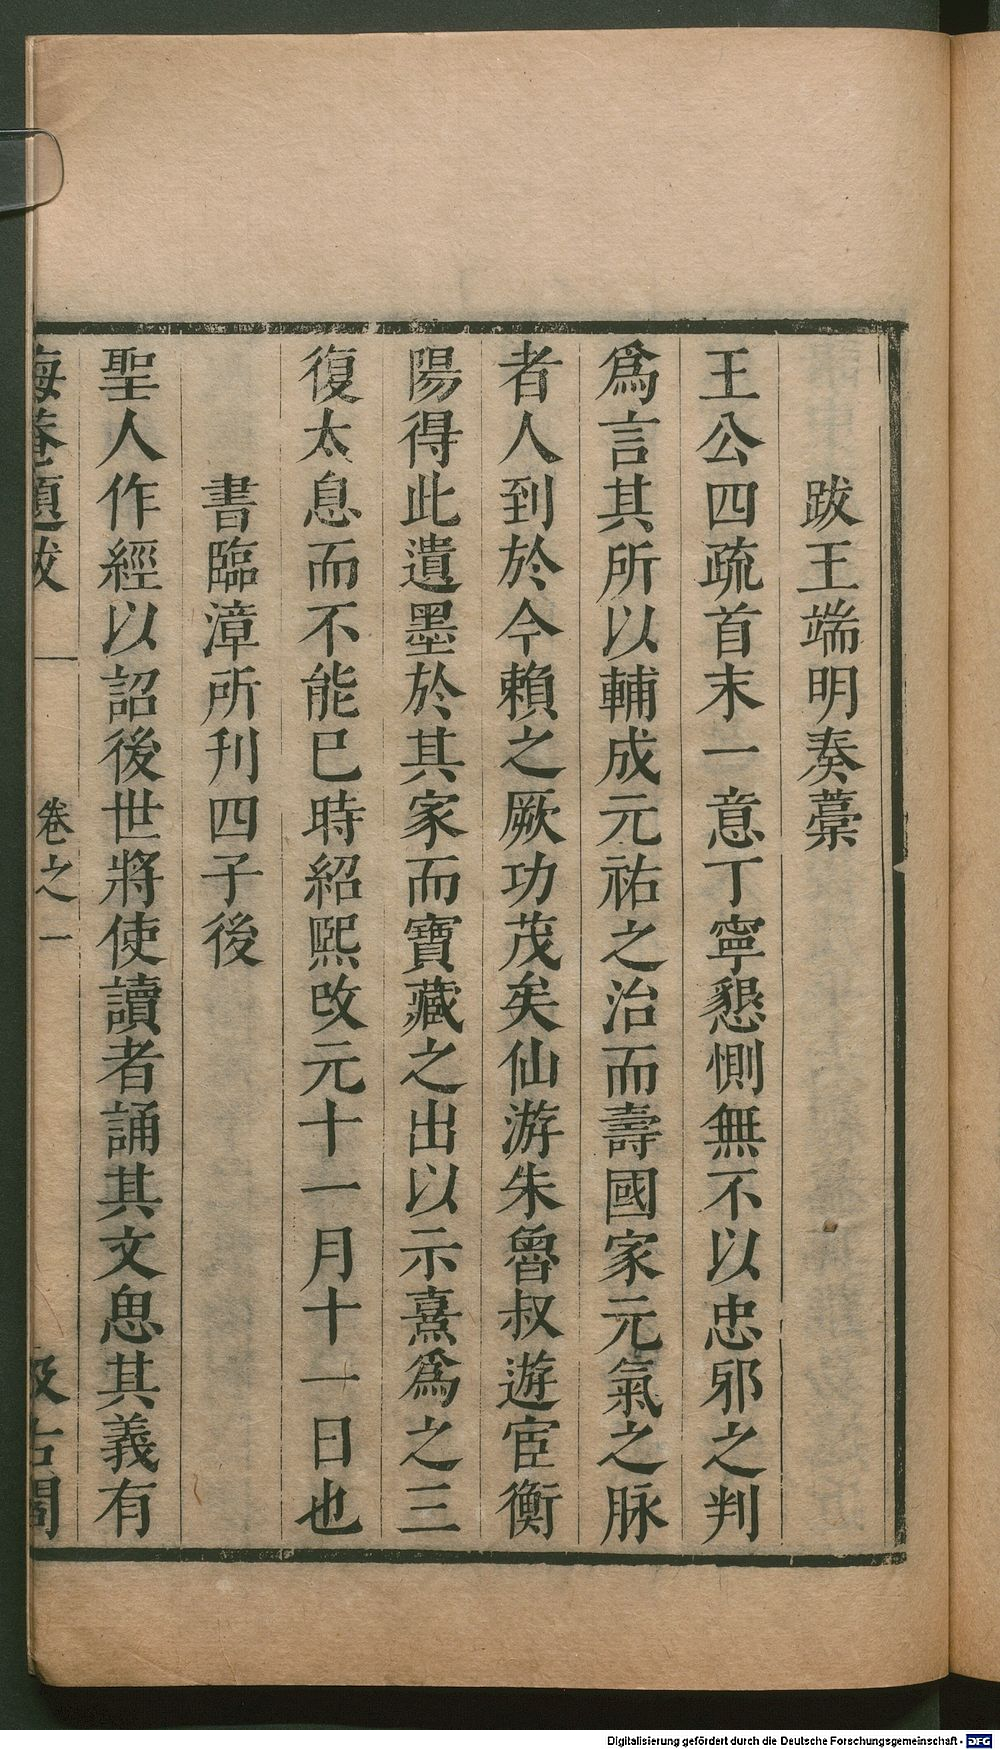 跋王端明奏藁
王公四疏首末一意丁寧懇惻無不以忠邪之判
爲言其所以輔成元祐之治而壽國家元氣之脉
者人到於今賴之厥功茂矣仙游朱魯叔遊宦衡
陽得此遺墨於其家而寶藏之出以示熹爲之三
復太息而不能已時紹熙改元十一月十一日也
書臨漳所刊四子後
聖人作經以詔後世將使讀者誦其文思其義有
晦菴題跋 卷之一 汲古閣
Digitalisierung gefördert durch die Deutsche Forschungsgemeinschaft - DFG